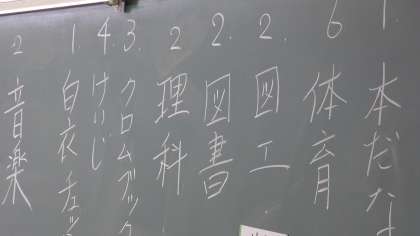 1. 本だな
6 体育
2. 図工
2. 図書
2 理科
3. クロムブック
4. けいじ
1. 白衣チェッ
2 音楽